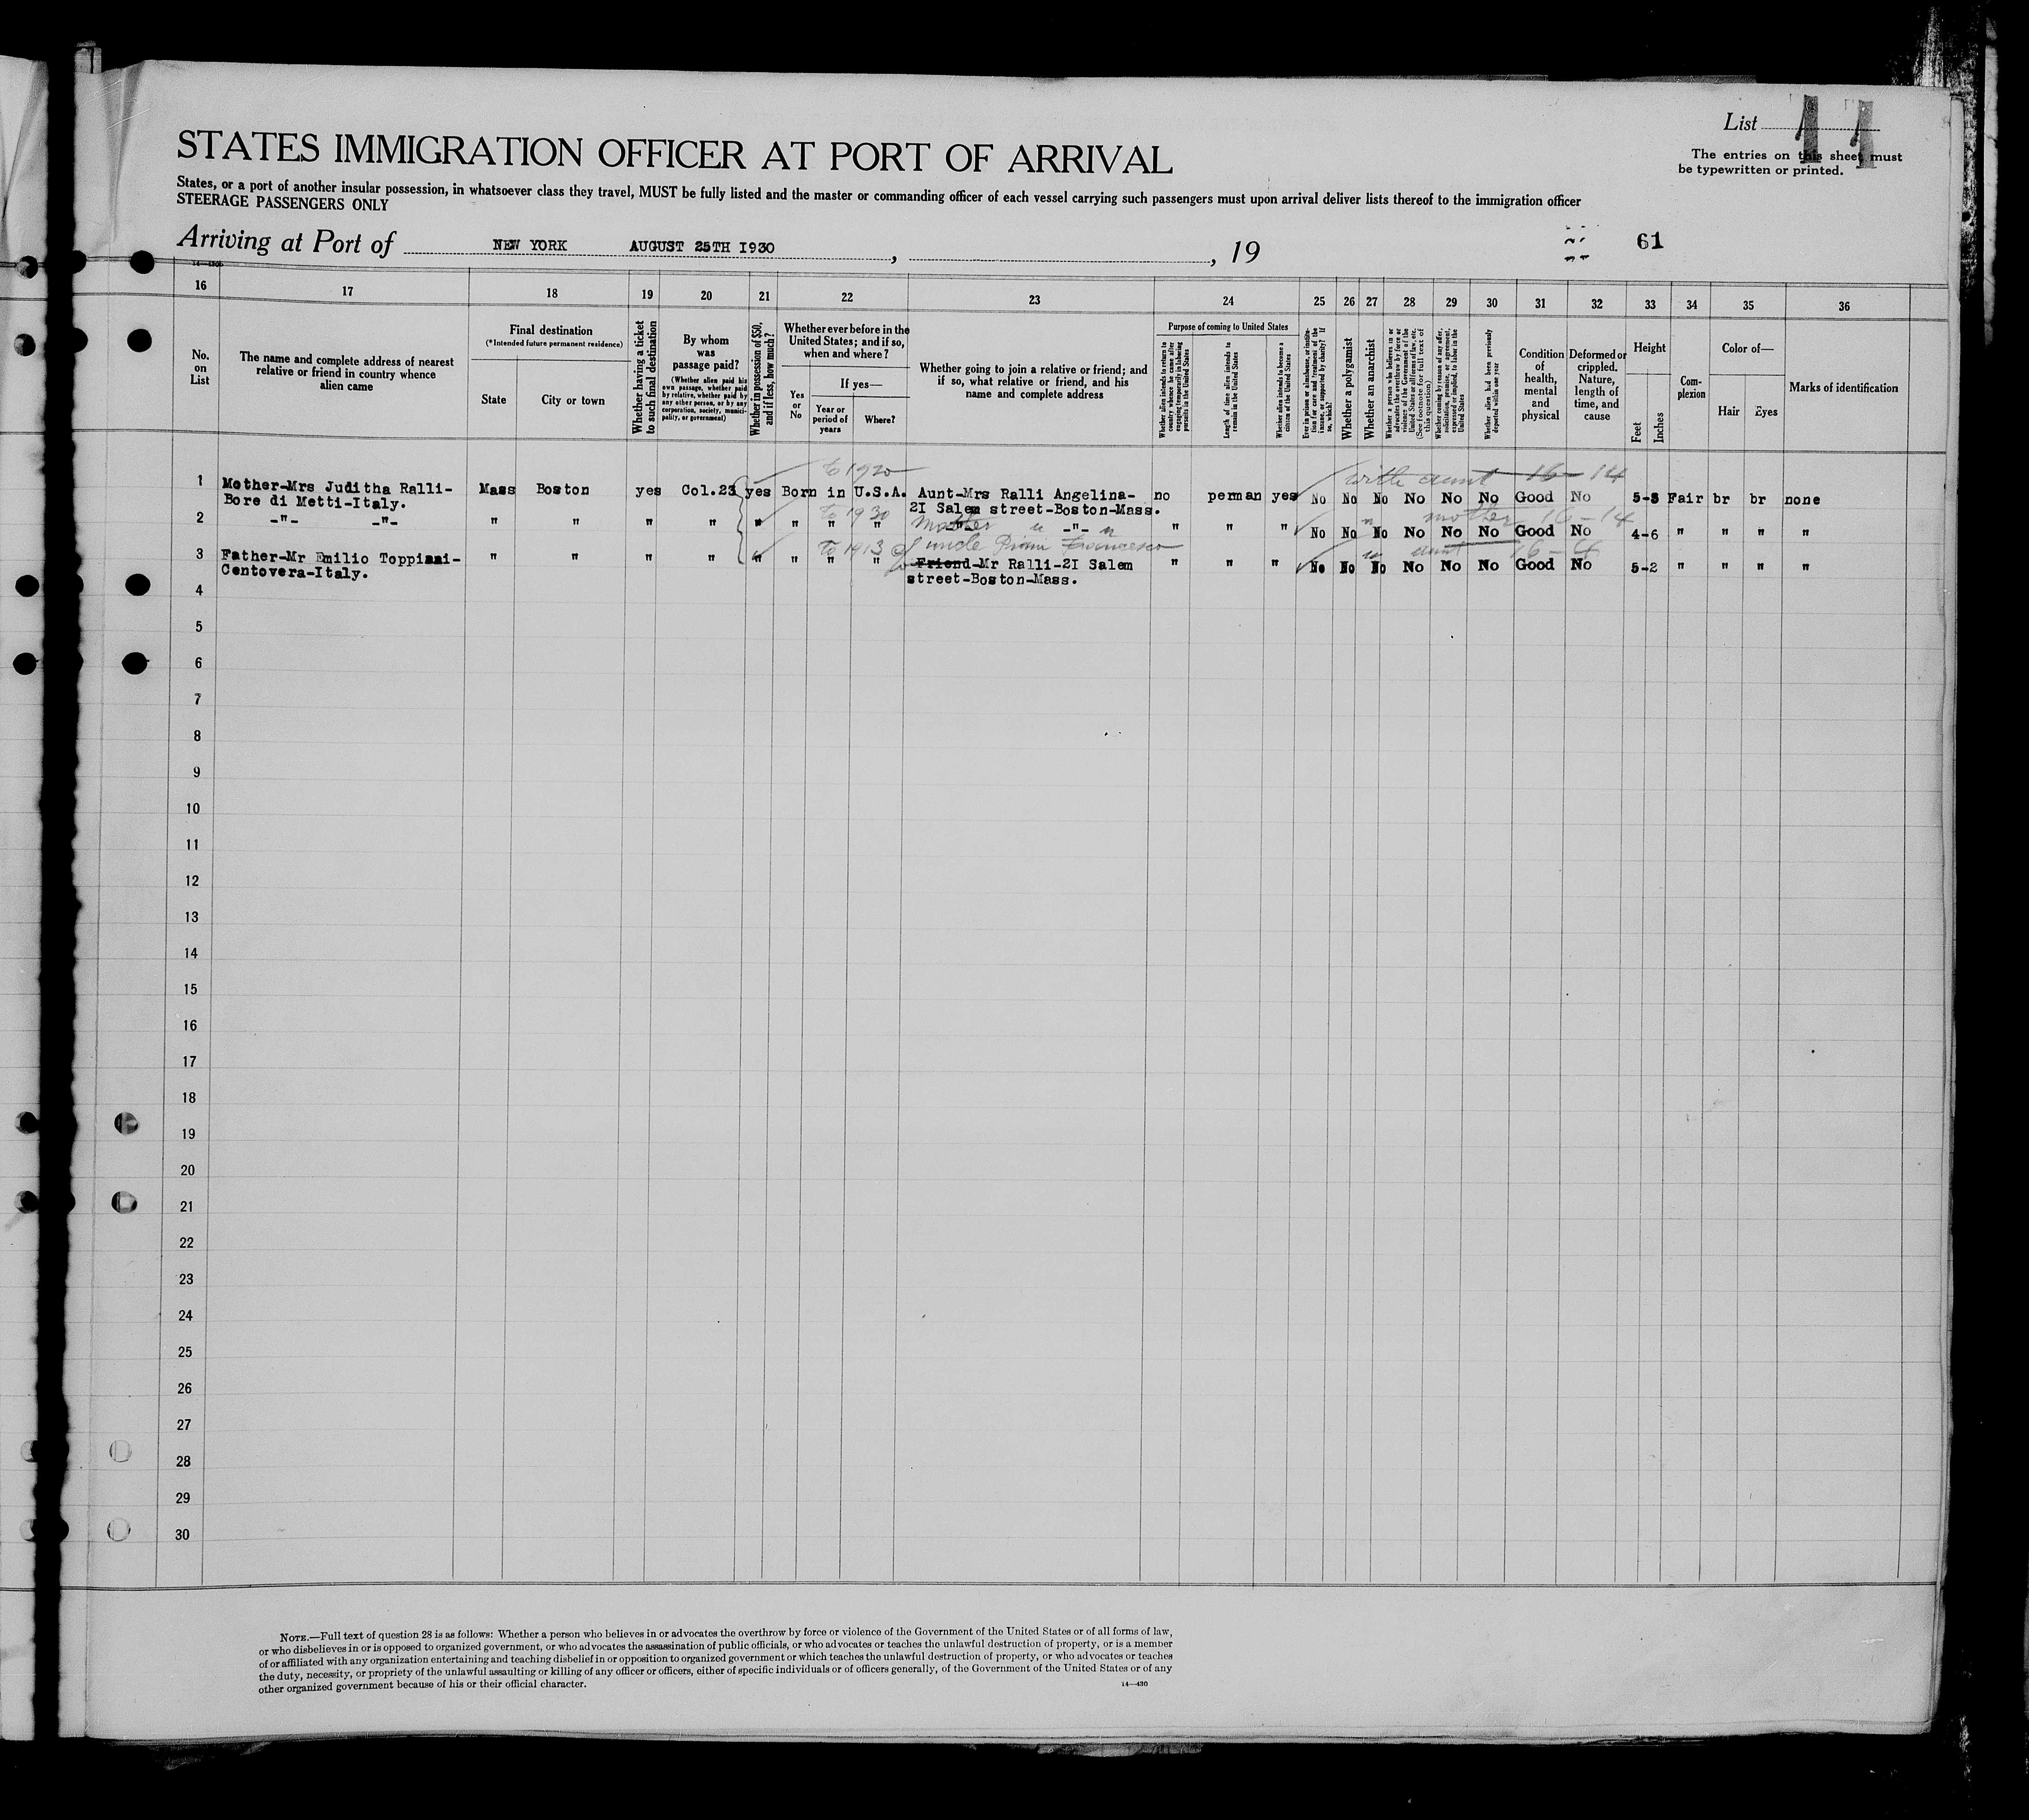 List 11
The entries on this sheet must
be typewritten or printed.
STATES IMMIGRATION OFFICER AT PORT OF ARRIVAL
States, or a port of another insular possession, in whatsoever class they travel, MUST be fully listed and the master or commanding officer of each vessel carrying such passengers must upon arrival deliver lists thereof to the immigration officer
STEERAGE PASSENGERS ONLY
Arriving at Port of NEW YORK AUGUST 25TH I930, , 19 61
16 17 18 19 20 21 22 23 24 25 26 27 28 29 30 31 32 33 34 35 36
No.
on
List
The name and complete address of nearest
relative or friend in country whence
alien came
Final destination
(*Intended future permanent residence)
State
City or town
Whether having a ticket
to such final destination
By whom
was
passage paid?
(Whether alien paid his
own passage, whether paid
by relative, whether paid by
any other person, or by any
corporation, society, munici-
pality, or government)
Whether in possession of $50,
and if less, how much?
Whether ever before in the
United States; and if so,
when and where?
Yes
or
No
If yes—
Year or
period of
years
Where?
Whether going to join a relative or friend; and
if so, what relative or friend, and his
name and complete address
Purpose of coming to United States
Whether alien intends to return to
country whence he came after
engaging temporarily in laboring
pursuits in the United States
Length of time alien intends to
remain in the United States
Whether alien intends to become a
citizen of the United States
Ever in prison or almshouse, or institu-
tion for care and treatment of the
insane, or supported by charity? If
so, which?
Whether a polygamist
Whether an anarchist
Whether a person who believes in or
advocates the overthrow by force or
violence of the Government of the
United States or all forms of law, etc.
(See footnote for full text of
this question)
Whether coming by reason of any offer,
solicitation, promise, or agreement,
expressed or implied, to labor in the
United States
Whether alien had been previously
deported within one year
Condition
of
health,
mental
and
physical
Deformed or
crippled.
Nature,
length of
time, and
cause
Height
Feet
Inches
Com-
plexion
Color of—
Hair
Eyes
Marks of identification
to 1920 with aunt 16-14
1 Mother-Mrs Juditha Ralli- Mass Boston yes Col.23 yes Born in U.S.A. Aunt-Mrs Ralli Angelina- no perman yes No No No No No No Good No 5-3 Fair br br none
Bore di Metti-Italy. 2I Salem street-Boston-Mass.
to 1930 mother 16-14
2 -"- -"- " " " " " " " " Mother " -"- " " " " No No No No No No Good No 4-6 " " " "
to 1913 uncle Pioni Francesco aunt 16-4
3 Father-Mr Emilio Toppiani- " " " " " " " " Friend-Mr Ralli-2I Salem " " " No No No No No No Good No 5-2 " " " "
Centovera-Italy. street-Boston-Mass.
4
5
6
7
8
9
10
11
12
13
14
15
16
17
18
19
20
21
22
23
24
25
26
27
28
29
30
NOTE.—Full text of question 28 is as follows: Whether a person who believes in or advocates the overthrow by force or violence of the Government of the United States or of all forms of law,
or who disbelieves in or is opposed to organized government, or who advocates the assassination of public officials, or who advocates or teaches the unlawful destruction of property, or is a member
of or affiliated with any organization entertaining and teaching disbelief in or opposition to organized government or which teaches the unlawful destruction of property, or who advocates or teaches
the duty, necessity, or propriety of the unlawful assaulting or killing of any officer or officers, either of specific individuals or of officers generally, of the Government of the United States or of any
other organized government because of his or their official character.
14—430